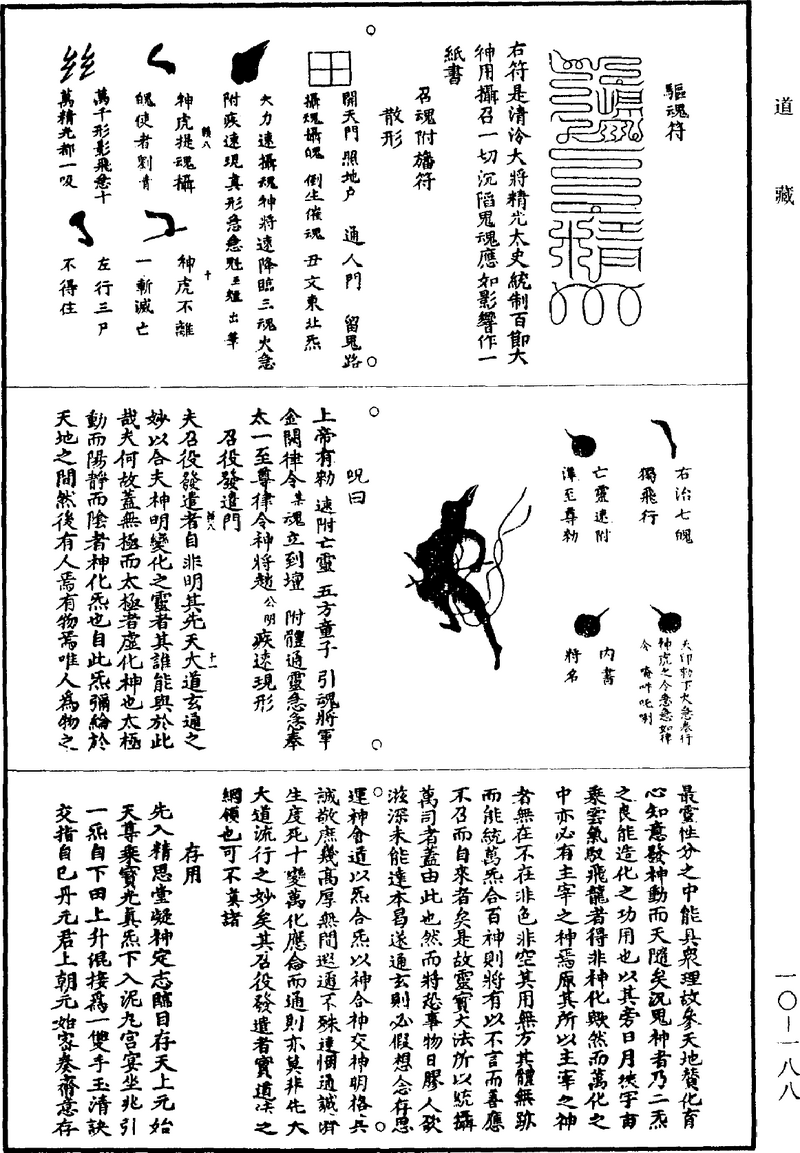 道藏
驅魂符
右符是清泠大將精光太史統制百節大
神用攝召一切沉滔鬼魂應如影響作一
紙書
召魂附旛符
散形
開天門 照地户 通人門 留鬼路
攝魂攝魄 倒生催魂 丑文東北炁
火力速攝魂神將速降臨三魂火急
附疾速現真形急急魁 出 筆
神虎捉魂攝
魄使者劉青
萬千形影飛急十
萬精光都一吸
神虎不離
一斬滅亡
左行三尸
不得住
右治七魄
獨飛行
亡靈速附
準至尊勑
天印勑下火急奉行
神虎之令急急如律
令
内書
將名
呪曰
上帝有勑 速附亡靈 五方童子 引魂將軍
金闕律令某魂立到壇 附體通靈急急奉
太一至尊律令神將趙公明疾速現形
召役發遣門
夫召役發遣者自非明其先天大道玄通之
妙以合夫神明變化之靈者其誰能與於此
哉夫何故蓋無極而太極者虛化神也太極
動而陽靜而陰者神化炁也自此炁彌綸於
天地之間然後有人焉有物焉唯人爲物之
最靈性分之中能具衆理故參天地賛化育
心知意發神動而天隨矣況鬼神者乃二炁
之良能造化之功用也以其旁日月挾宇宙
乘雲氣馭飛龍者得非神化歟然而萬化之
中亦必有主宰之神焉原其所以主宰之神
者無在不在非色非空其用無方其體無跡
而能統萬炁合百神則將有以不言而善應
不召而自來者矣是故靈寶大法所以統攝
萬司者蓋由此也然而將恐事物日膠人欲
滋深未能達本易遂通玄則必假想念存思
運神會道以炁合炁以神合神交神明格兵
誠敬庶幾高厚無間遐邇不殊連惘通誠
生度死十變萬化應念而通則亦莫非先大
大道流行之妙矣其召役發遣者實道法之
綱領也可不冥諸
存用
先入精思堂凝神定志臨目存天上元始
天尊乘寶光真炁下入泥丸宮宴坐兆引
一炁自下田上升俱接爲一雙手玉清訣
交指自已丹元君上朝元始密奏齋意存
一〇－一八八